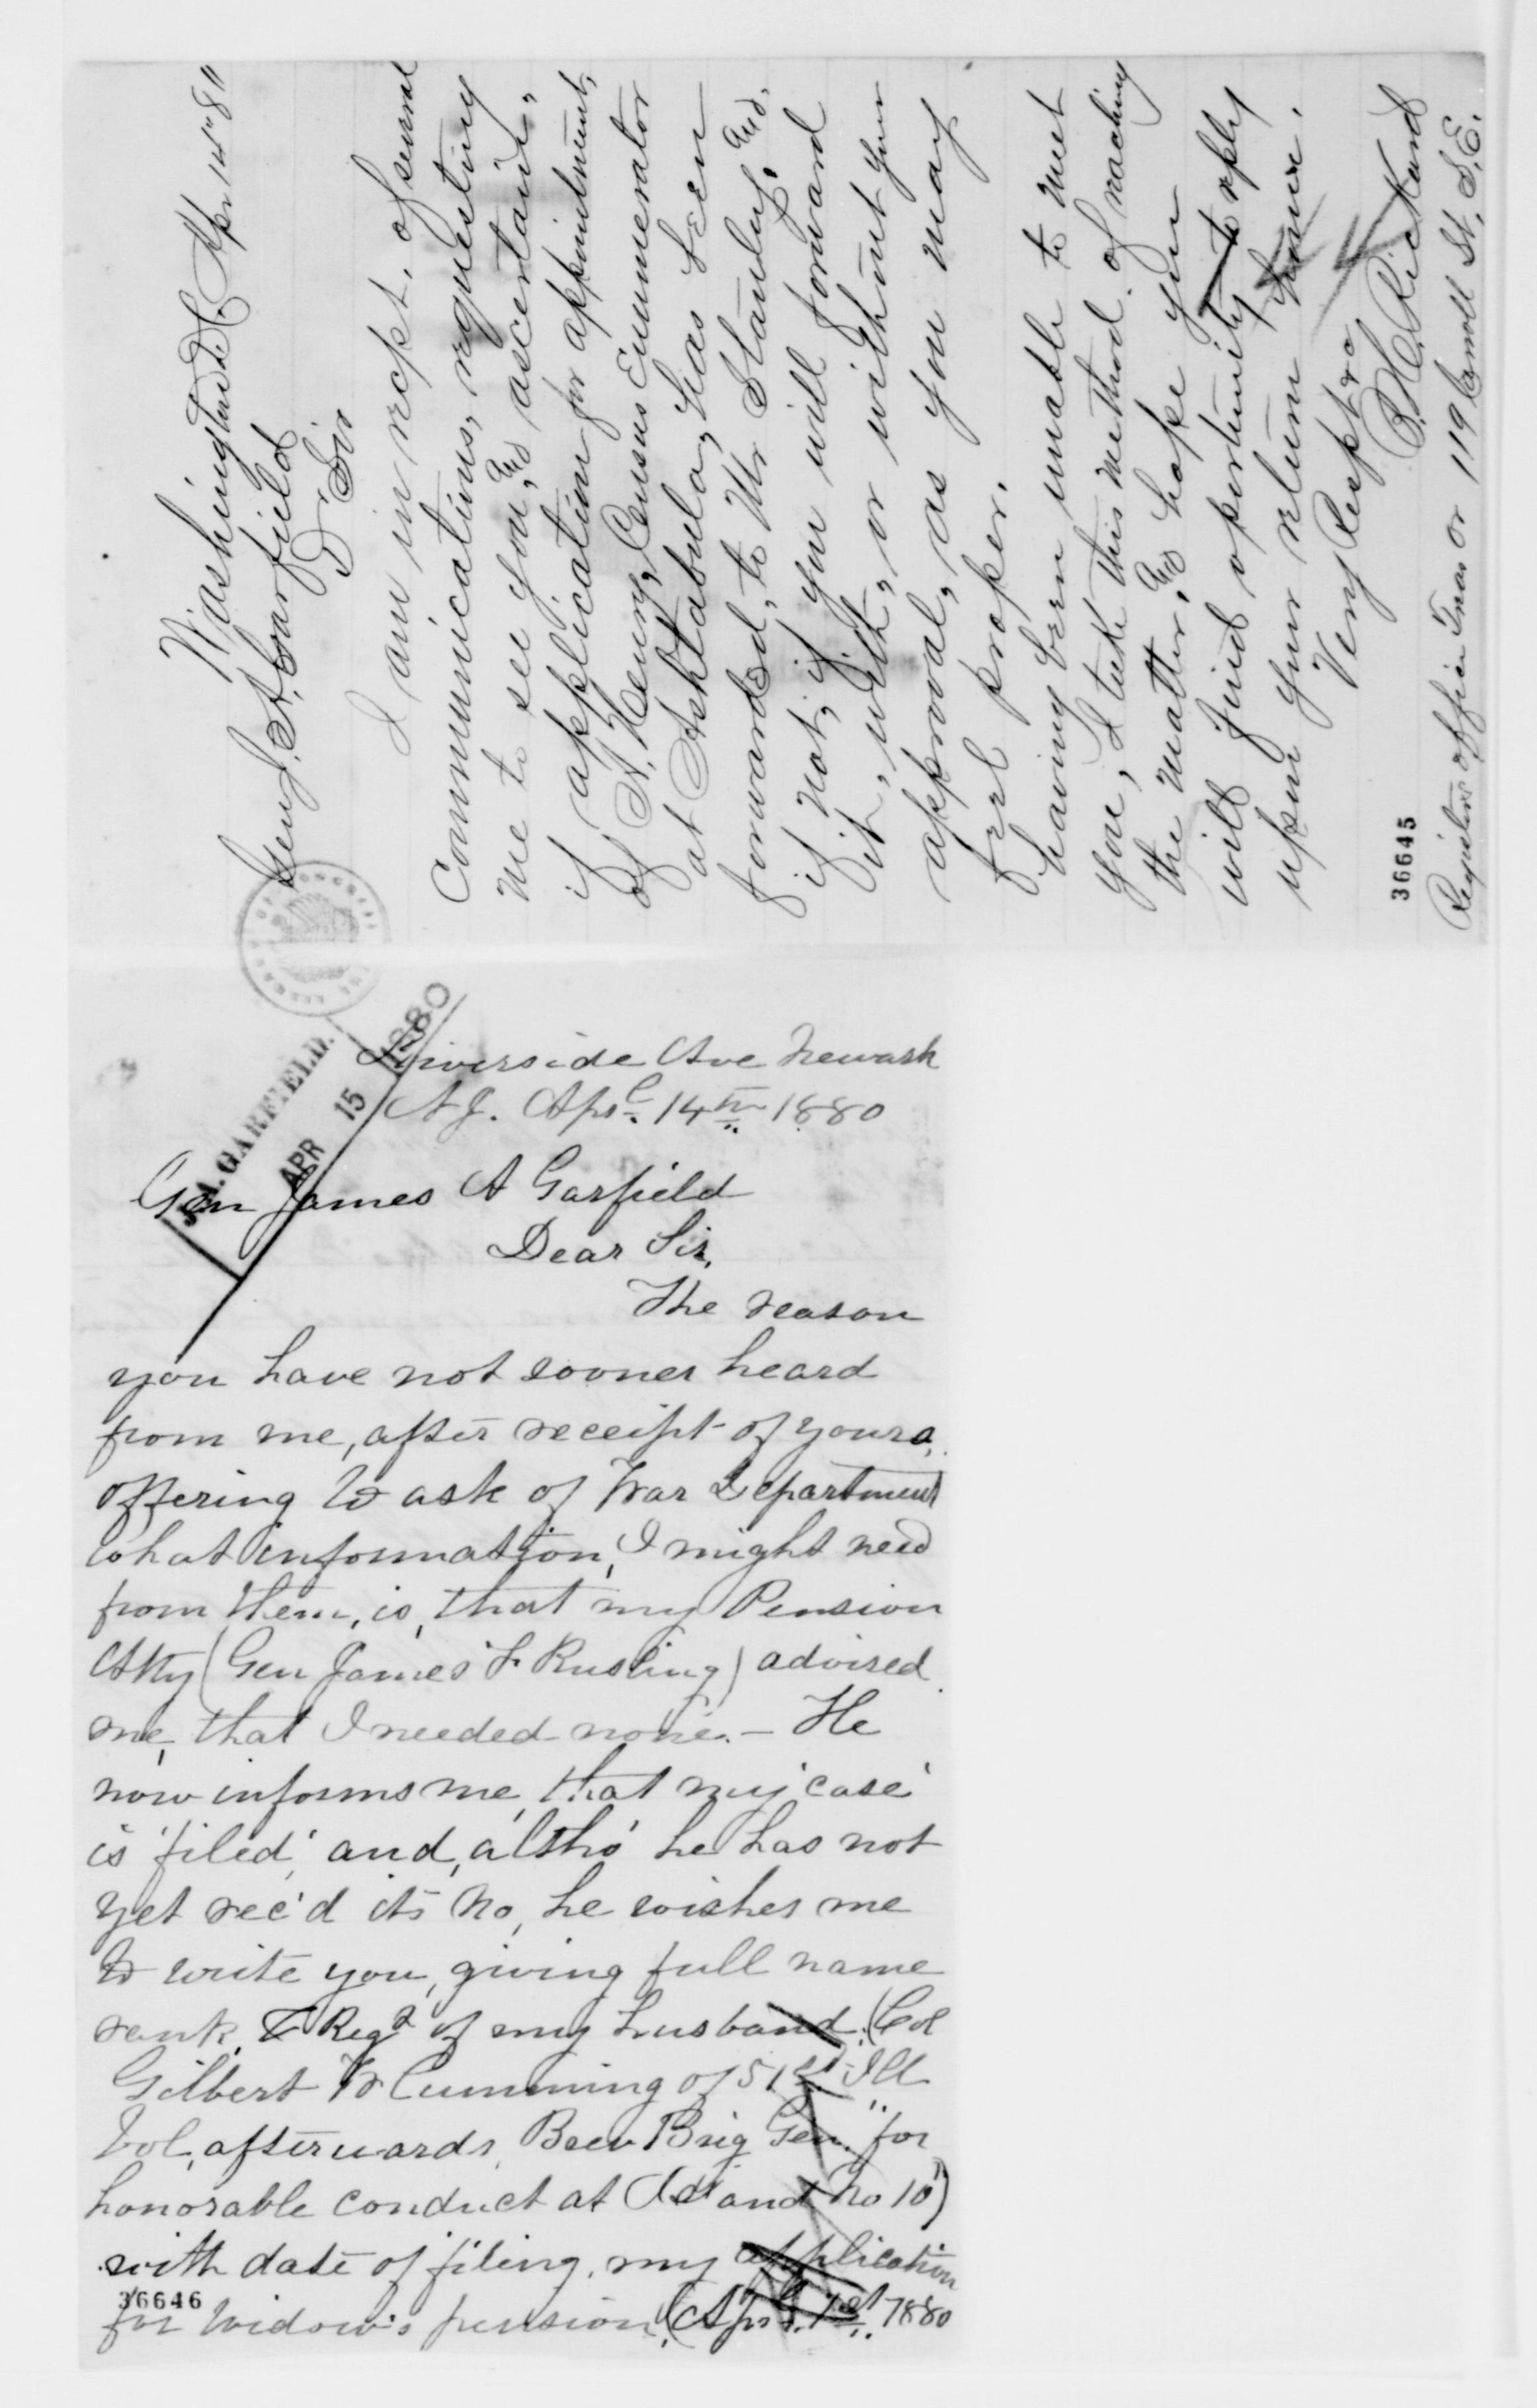 Washington D.C. Apr 14" 80
Genl J. A. Garfield
D' Sir
I am in recpt. of several
Communications, requesting
me to see you, and ascertain,
if application for appointment,
of A. Henry, Census Enumerator
at Ashtabula, has been
forwarded, to Mr Stanley, and,
if not, if you will forward
it, with, or without your
approval, as you may
feel proper.
having been unable to meet
you, I take this method of reaching
the matter, and hope you
will find opportunity to reply
upon your return home.
Very Respt &c
B. H. Rickand
36645
Registers office Treas or 119 Carroll St. S.E.
J. A. GARFIELD.
APR 15 1880
Riverside Ave Newark
N.J. Aprl. 14th 1880
Gen James A Garfield
Dear Sir,
The reason
you have not sooner heard
from me, after receipt of yours,
offering to ask of War Department
what information, I might need
from them, is, that my Pension
Atty (Gen James F. Rusling) advised
me, that I needed none. — He
now informs me, that my 'case'
is 'filed', and, altho' he has not
yet rec'd its No, he wishes me
to write you, giving full name
rank, & Regt of my husband. (Col
Gilbert W Cumming of 51st Ill
Vol, afterwards, Brev Brig Gen. "for
honorable conduct at Island No 10")
with date of filing, my application
36646
for widow's pension, (Aprl. 1st, 1880